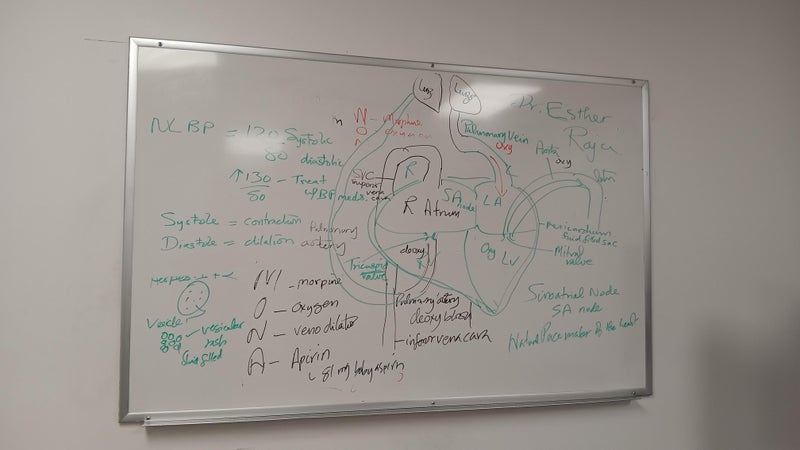 Lungs
Lungs
Dr. Esther
Raja
NLBP = 120 Systolic
80 diastolic
↑130 - Treat
80 BP meds.
Systole = contraction
Diastole = dilation
Pulmonary
artery
Herpes
Vesicle
vesicular
rash
fluid filled
M - morpine
O - oxygen
N - venodilator
A - Apirin
81 mg baby aspirin
M - Morphine
O
SVC
superior
vena
cava
R
R Atrium
SA
node
LA
Pulmonary Vein
oxy
Aorta
oxy
pericardium
fluid filled sac
Mitral
valve
Oxy LV
deoxy
RV
Tricuspid
valve
Pulmonary artery
deoxy blood
inferor vena cava
Sinoatrial Node
SA node
Natural Pace maker of the heart